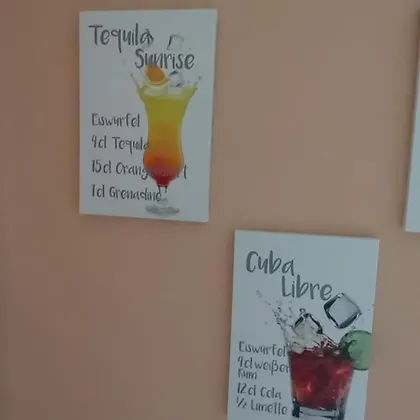 Tequila
Sunrise
Eiswürfel
4cl Tequila
15cl Orangensaft
1cl Grenadine
Cuba
Libre
Eiswürfel
4cl weißer
Rum
12cl Cola
½ Limette